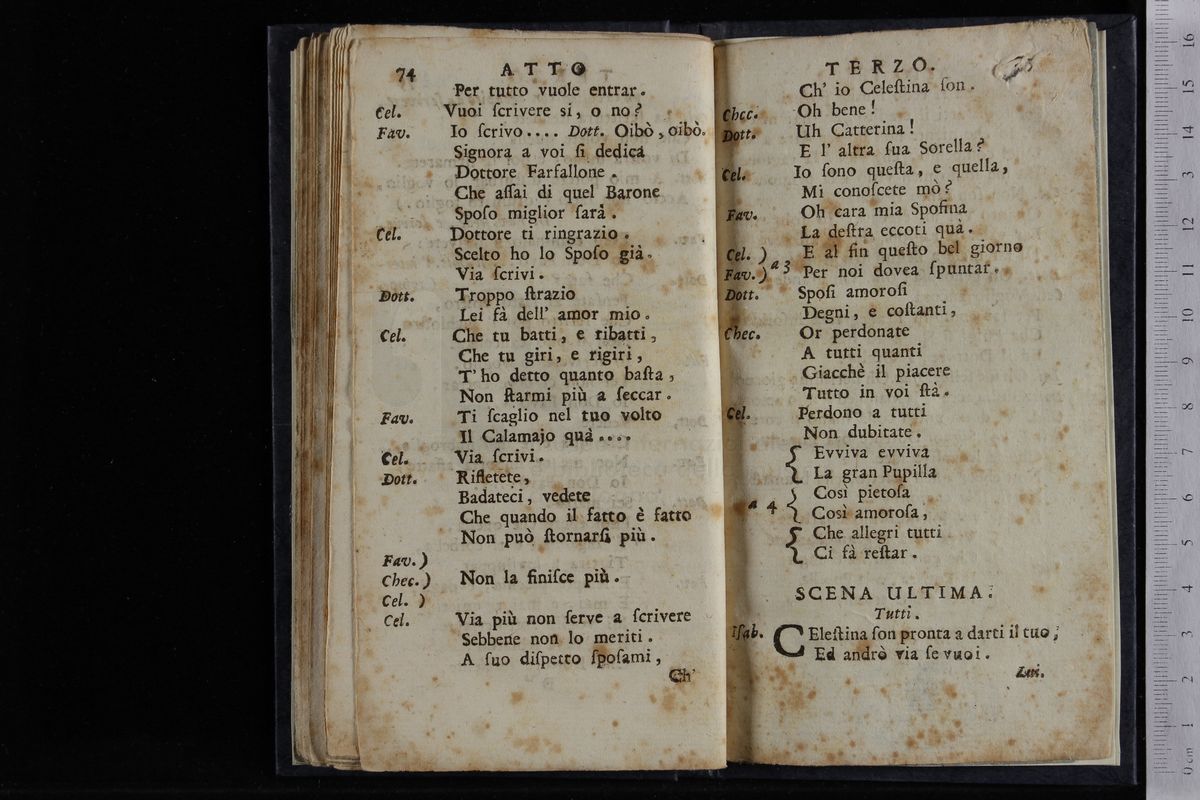 74 ATTO
Per tutto vuole entrar.
Cel. Vuoi ſcrivere sì, o no?
Fav. Io ſcrivo.... Dott. Oibò, oibò.
Signora a voi ſi dedica
Dottore Farfallone.
Che aſſai di quel Barone
Spoſo miglior ſarà.
Cel. Dottore ti ringrazio.
Scelto ho lo Spoſo già.
Via ſcrivi.
Dott. Troppo ſtrazio
Lei fà dell' amor mio.
Cel. Che tu batti, e ribatti,
Che tu giri, e rigiri,
T' ho detto quanto baſta,
Non ſtarmi più a ſeccar.
Fav. Ti ſcaglio nel tuo volto
Il Calamajo quà....
Cel. Via ſcrivi.
Dott. Rifletete,
Badateci, vedete
Che quando il fatto è fatto
Non può ſtornarſi più.
Fav.)
Chec.) Non la finiſce più.
Cel. )
Cel. Via più non ſerve a ſcrivere
Sebbene non lo meriti.
A ſuo diſpetto ſpoſami,
Ch'
TERZO. 75
Ch' io Celeſtina ſon.
Chec. Oh bene!
Dott. Uh Catterina!
E l' altra ſua Sorella?
Cel. Io ſono queſta, e quella,
Mi conoſcete mò?
Fav. Oh cara mia Spoſina
La deſtra eccoti quà.
Cel. ) E al fin queſto bel giorno
Fav. ) a 3 Per noi dovea ſpuntar.
Dott. Spoſi amoroſi
Degni, e coſtanti,
Chec. Or perdonate
A tutti quanti
Giacchè il piacere
Tutto in voi ſtà.
Cel. Perdono a tutti
Non dubitate.
Evviva evviva
La gran Pupilla
Così pietoſa
a 4 Così amoroſa,
Che allegri tutti
Ci fà reſtar.
SCENA ULTIMA.
Tutti.
Iſab. CEleſtina ſon pronta a darti il tuo;
Ed andrò via ſe vuoi.
Lui.
0 cm 1 2 3 4 5 6 7 8 9 10 11 12 13 14 15 16